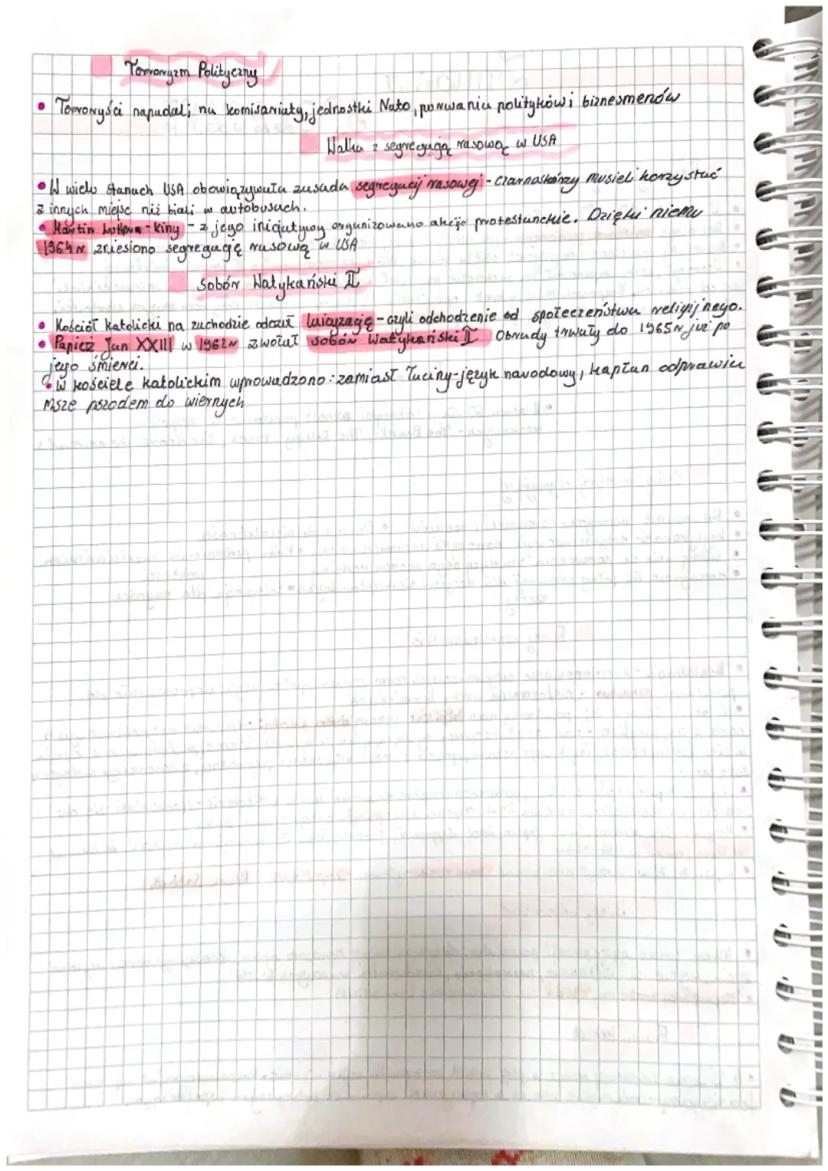 Terroryzm Polityczny
• Terroryści napadali na komisariaty, jednostki Nato, porwania polityków i biznesmenów
Walka z segregacją rasową w USA
• W wielu stanach USA obowiązywała zasada segregacji rasowej - czarnoskórzy musieli korzystać
z innych miejsc niż biali w autobusach.
• Martin Luther - King - z jego inicjatywy organizowano akcje protestanckie. Dzięki niemu
1964r zniesiono segregację rasową w USA
Sobór Watykański II
• Kościół katolicki na zachodzie odczuł laicyzację - czyli odchodzenie od społeczeństwa religijnego.
• Papież Jan XXIII w 1962r zwołał sobór Watykański II. Obrady trwały do 1965r już po
jego śmierci.
• W kościele katolickim wprowadzono: zamiast łaciny - język narodowy, kapłan odprawia
msze przodem do wiernych